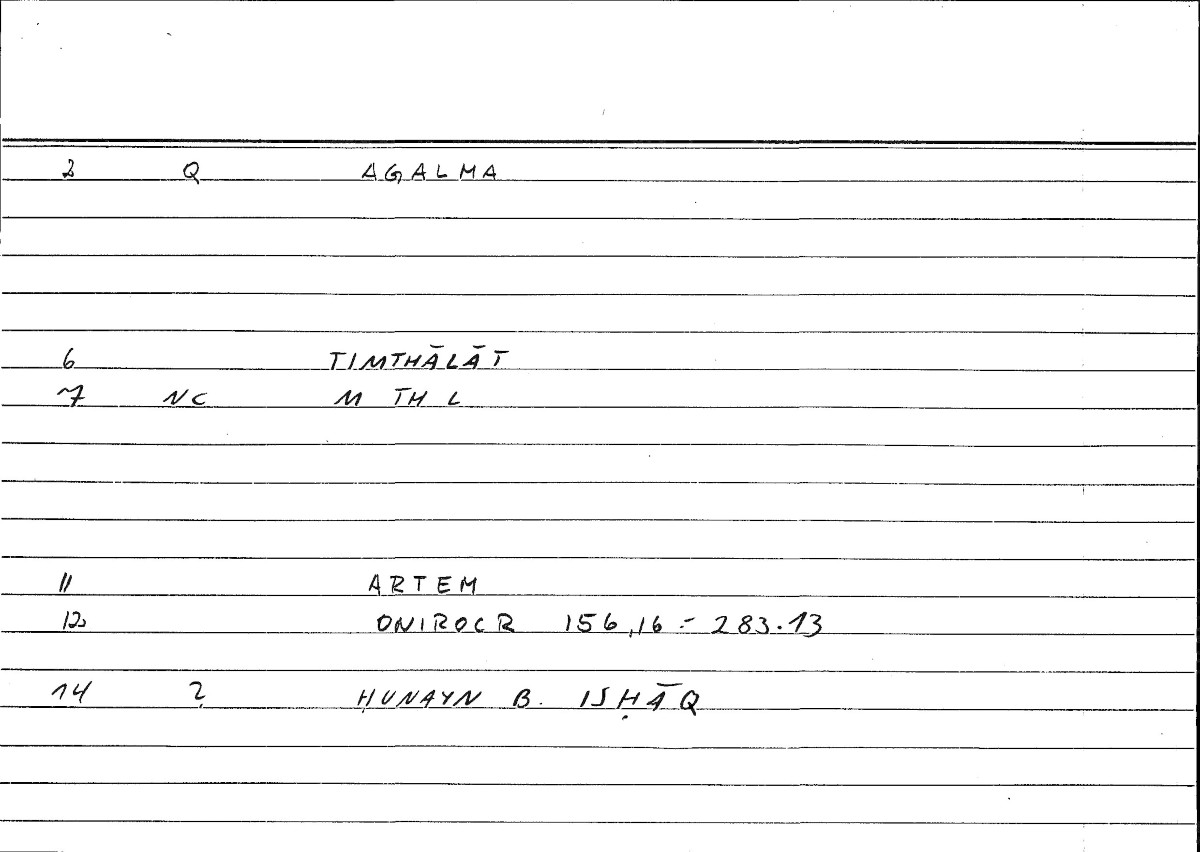 2 Q AGALMA
6 TIMTHĀLĀT
7 NC M TH L
11 ARTEM
12 ONIROCR 156,16 = 283.13
14 ? ḤUNAYN B. ISḤĀQ